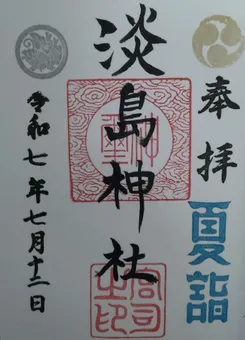 奉拝
夏詣
淡島神社
宮司之印
令和七年七月十二日